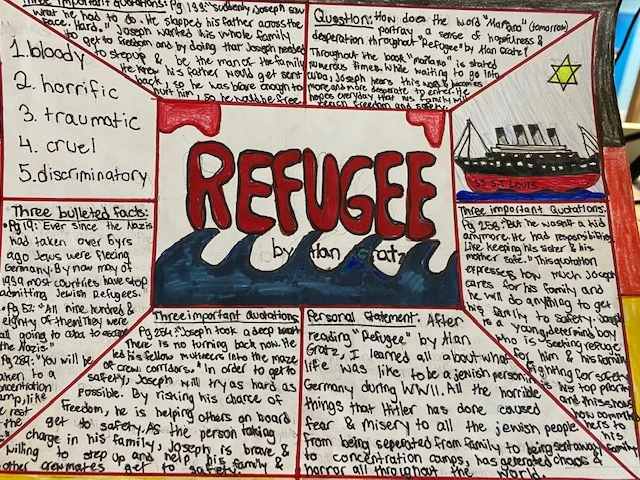 Three important quotations: Pg 193: "Suddenly Joseph saw
what he had to do. He slapped his father across the
face, hard." Joseph wanted his whole family
to get to freedom and by doing that Joseph needed
to step up & be the man of the family
He knew his father would get sent
back, so he was brave enough to
hurt him, so he would be free.
Question: How does the word "Mañana" (tomorrow)
portray a sense of hopefulness &
desperation throughout "Refugee" by Alan Gratz?
Throughout the book "mañana" is stated
numerous times. While waiting to go into
Cuba, Joseph hears this word & becomes
more and more desperate to enter. He
hopes everyday that his family will
freedom and safety.
1. bloody
2. horrific
3. traumatic
4. cruel
5. discriminatory
SS ST LOUIS
REFUGEE
by Alan Gratz
Three bulleted Facts:
• Pg 19: Ever since the Nazis
had taken over 6yrs
ago Jews were fleeing
Germany. By now may of
1939 most countries have stop
admitting Jewish Refugees.
• Pg 52: "All nine hundred &
eighty of them! They were
all going to cuba to escape
Pg 289: "You will be
taken to a
concentration
camp, like
rest
Three important Quotations:
Pg 256: "But he wasn't a kid
anymore. He had responsibilities
Like keeping his sister & his
mother safe." This quotation
expresses how much Joseph
cares for his family and
he will do anything to get
his family to safety. Joseph
is a young, determind boy
who is seeking refuge
for him & his family
fighting for safety
is his top priority
Three important quotations
Pg 254: "Joseph took a deep breath
There is no turning back now. He
led his fellow mutineers into the maze
of crew corridors." In order to get to
safety, Joseph will try as hard as
possible. By risking his chance of
freedom, he is helping others on board
get to safety. As the person taking
charge in his family, Joseph is brave &
willing to step up and help his family &
other crewmates get to safety.
Personal Statement: After
reading "Refugee" by Alan
Gratz, I learned all about what
life was like to be a jewish person in
Germany during WWII. All the horrible
things that Hitler has done caused
fear & misery to all the jewish people.
From being seperated from family to being sent away
to concentration camps, has generated chaos &
horror all throughout the world.